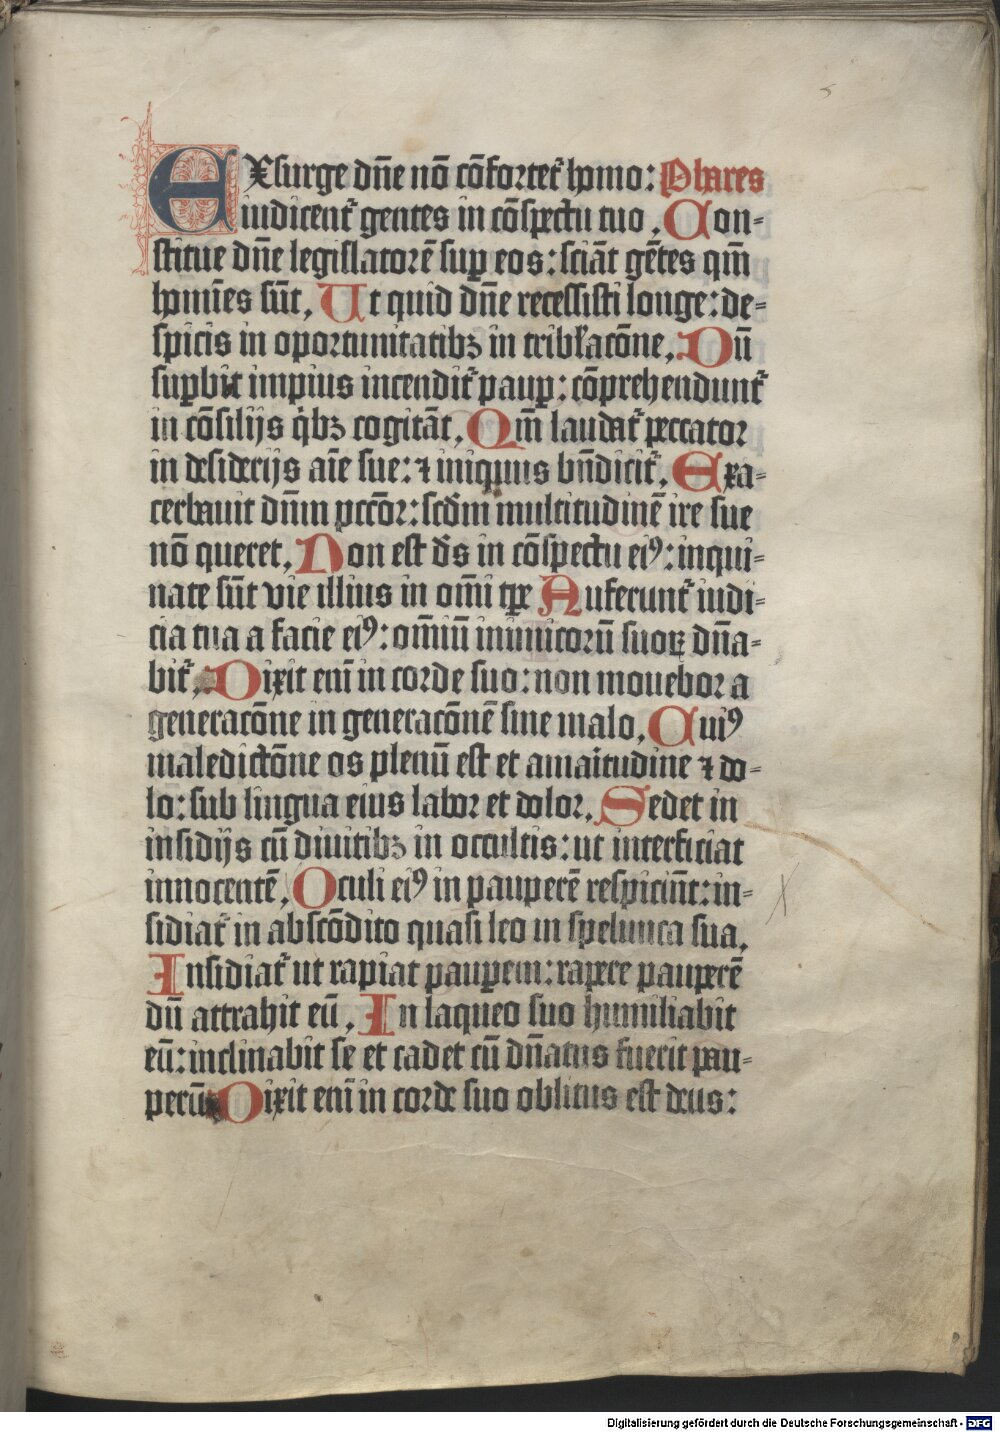 5
EXsurge dñe nō cōfortet᷑ hōmo: Phares
iudicent᷑ gentes in cōspectu tuo, Con⸗
stitue dñe legislatorē sup eos: sciāt gētes qm̄
homīes sūt, Ut quid dñe recessisti longe: de⸗
spicis in oportunitatibꝫ in tribl̄acōne, Dū
supbit impius incendit᷑ paup: cōprehendunt᷑
in cōsilijs qͥbꝫ cogitāt, Qm̄ laudat᷑ peccator
in desiderijs aīe sue: ⁊ iniquus bn̄dicit᷑, Exa⸗
cerbauit dn̄m pccōr: scd̄m multitudinē ire sue
nō queret, Non est ds̄ in cōspectu eiꝰ: inqui⸗
nate sūt vie illius in om̄i tpe Auferunt᷑ iudi⸗
cia tua a facie eiꝰ: om̄iū inimicorū suoꝝ dn̄a⸗
bit᷑, Dixit enī in corde suo: non mouebor a
generacōne in generacōnē sine malo, Cuiꝰ
maledictōne os plenū est et amaitudine ⁊ do⸗
lo: sub lingua eius labor et dolor, Sedet in
insidijs cū diuitibꝫ in occultis: ut interficiat
innocentē, Oculi eiꝰ in pauperē respiciūt: in⸗
sidiat᷑ in abscōdito quasi leo in spelunca sua,
Insidiat᷑ ut rapiat paupem: rapere pauperē
dū attrahit eū, In laqueo suo humiliabit
eū: inclinabit se et cadet cū dn̄atus fuerit pau⸗
perū Dixit enī in corde suo oblitus est deus:
Digitalisierung gefördert durch die Deutsche Forschungsgemeinschaft - DFG